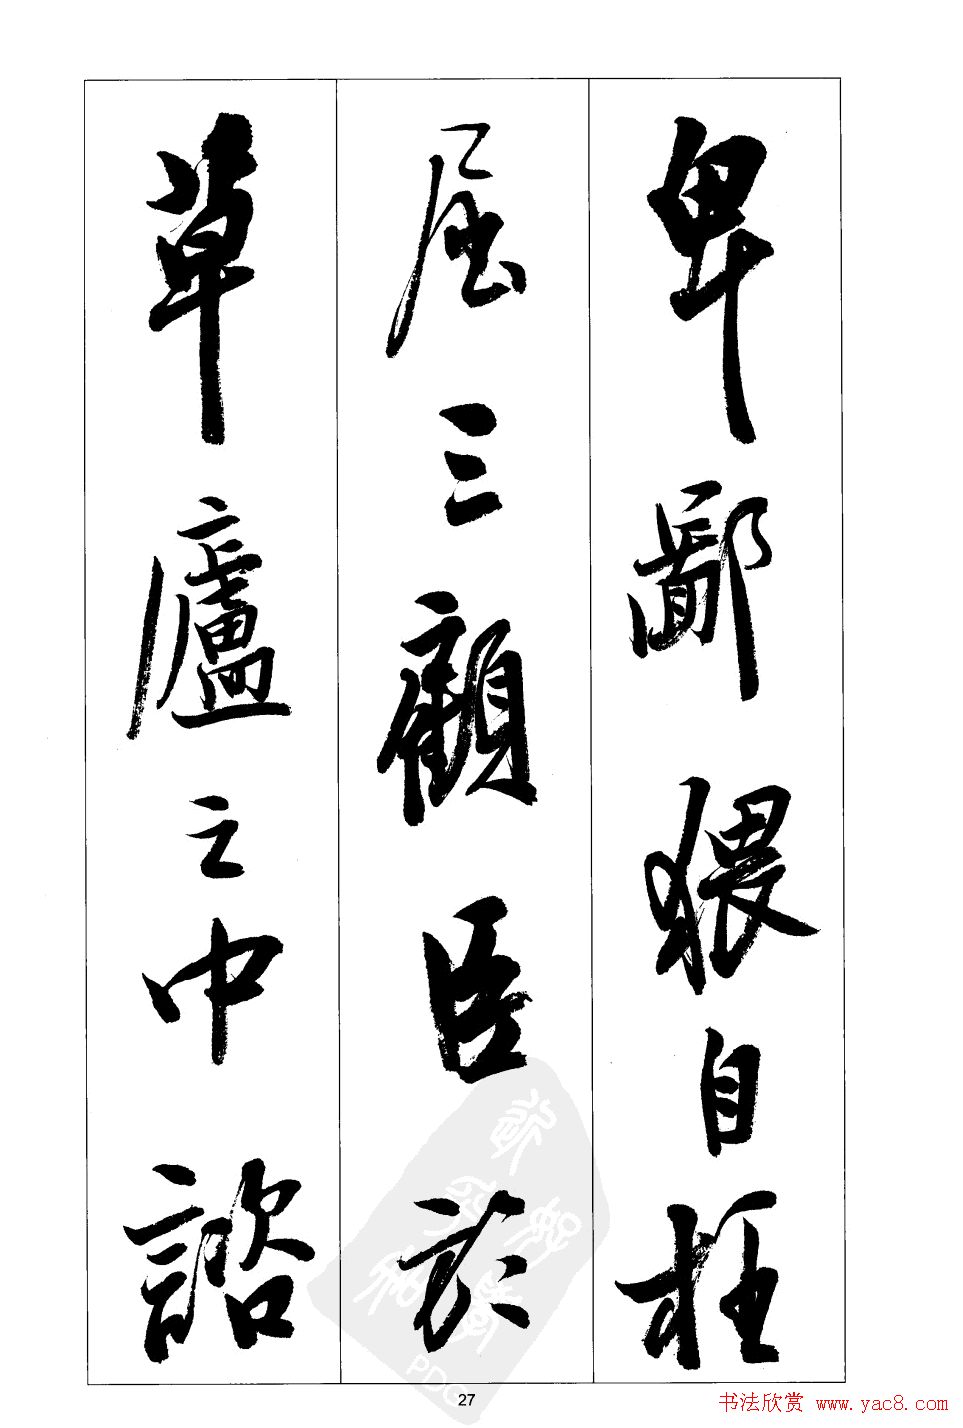 卑鄙猥自枉
屈三顧臣於
草廬之中諮
27
书法欣赏 www.yac8.com